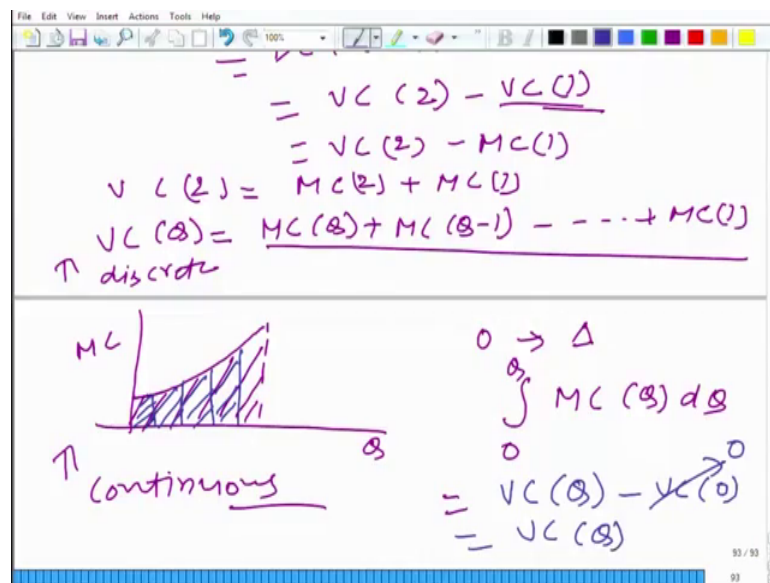 File Edit View Insert Actions Tools Help
100%
= VC (2) - VC(1)
= VC(2) - MC(1)
VC(2) = MC(2) + MC(1)
VC(Q) = MC(Q) + MC(Q-1) - - - - - + MC(1)
↑ discrete
MC
0 → Δ
Q
∫ MC (Q) dQ
0
Q
↑ continuous
= VC(Q) - VC(0) 0
= VC(Q)
93 / 93
93